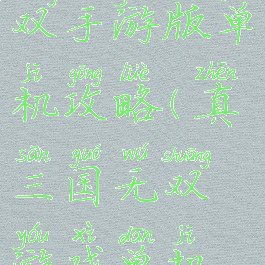 双手游版单
jī gōng lüè zhēn
机攻略(真
sān guó wú shuāng
三国无双
yóu xì dān jī
游戏单机